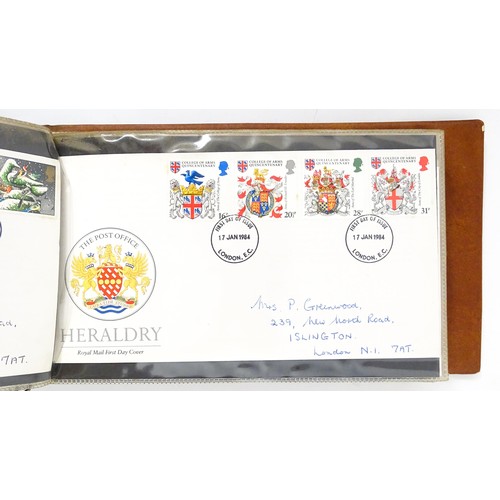 COLLEGE OF ARMS
QUINCENTENARY
16
COLLEGE OF ARMS
QUINCENTENARY
20½
COLLEGE OF ARMS
QUINCENTENARY
28
COLLEGE OF ARMS
QUINCENTENARY
31
FIRST DAY OF ISSUE
17 JAN 1984
LONDON, E.C.
FIRST DAY OF ISSUE
17 JAN 1984
LONDON, E.C.
THE POST OFFICE
HERALDRY
Royal Mail First Day Cover
P. Greenwood,
239, New Road,
ISLINGTON.
London N.1. 7AT.
7AT.